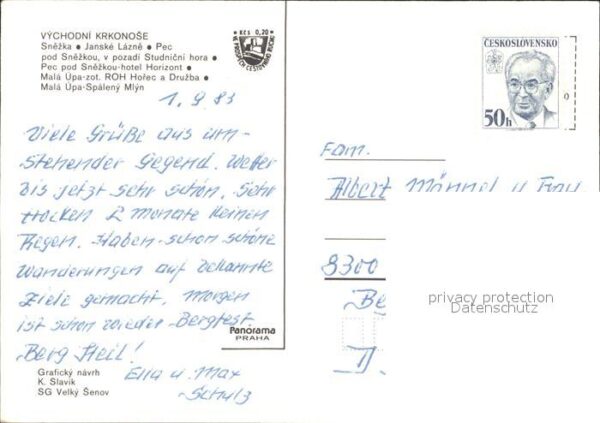 VÝCHODNÍ KRKONOŠE
Sněžka • Janské Lázně • Pec
pod Sněžkou, v pozadí Studniční hora •
Pec pod Sněžkou-hotel Horizont •
Malá Úpa-zot. ROH Hořec a Družba •
Malá Úpa-Spálený Mlýn
Kčs 0,20
1.9.83
Viele Grüße aus um-
stehender Gegend. Wetter
bis jetzt sehr schön. Sehr
trocken 2 Monate keinen
Regen. Haben schon schöne
Wanderungen auf bekannte
Ziele gemacht. Morgen
ist schon wieder Bergfest.
Berg Heil!
Ella u. Max
Schulz
Panorama
PRAHA
Grafický návrh
K. Slavík
SG Velký Šenov
ČESKOSLOVENSKO
50h
Fam.
Albert Männel u Frau
8300
Be
D
privacy protection
Datenschutz